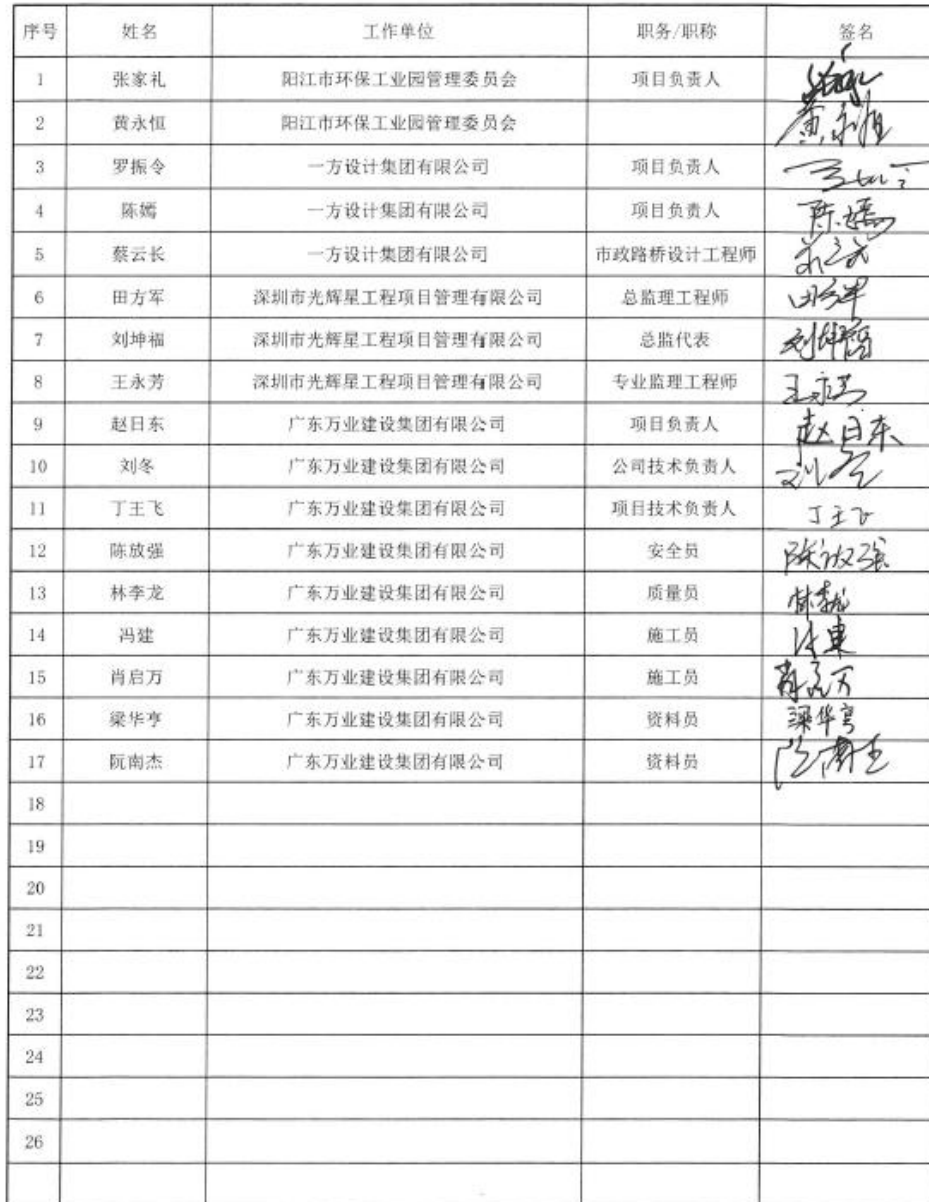 序号 姓名 工作单位 职务/职称 签名
1 张家礼 阳江市环保工业园管理委员会 项目负责人
2 黄永恒 阳江市环保工业园管理委员会 黄永恒
3 罗振令 一方设计集团有限公司 项目负责人
4 陈嫣 一方设计集团有限公司 项目负责人 陈嫣
5 蔡云长 一方设计集团有限公司 市政路桥设计工程师
6 田方军 深圳市光辉星工程项目管理有限公司 总监理工程师 田方军
7 刘坤福 深圳市光辉星工程项目管理有限公司 总监代表 刘坤福
8 王永芳 深圳市光辉星工程项目管理有限公司 专业监理工程师 王永芳
9 赵日东 广东万业建设集团有限公司 项目负责人 赵日东
10 刘冬 广东万业建设集团有限公司 公司技术负责人 刘冬
11 丁王飞 广东万业建设集团有限公司 项目技术负责人 丁王飞
12 陈放强 广东万业建设集团有限公司 安全员 陈放强
13 林李龙 广东万业建设集团有限公司 质量员 林李龙
14 冯建 广东万业建设集团有限公司 施工员
15 肖启万 广东万业建设集团有限公司 施工员 肖启万
16 梁华亨 广东万业建设集团有限公司 资料员 梁华亨
17 阮南杰 广东万业建设集团有限公司 资料员
18
19
20
21
22
23
24
25
26